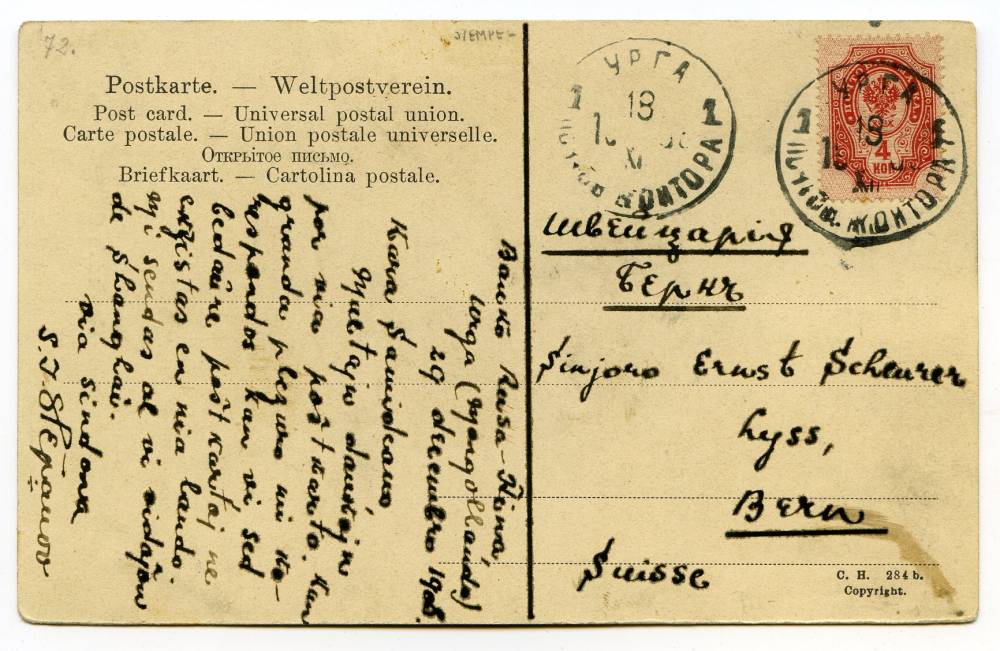 72.
STEMPEL
Postkarte. — Weltpostverein.
Post card. — Universal postal union.
Carte postale. — Union postale universelle.
Открытое письмо.
Briefkaart. — Cartolina postale.
Banko Rusa-Ĥina,
Urga (Mongollando)
29 decembro 1905
Kara Samideano
Multajn dankojn
por via poŝtkarto. Kun
granda plezuro mi ko-
respondos kun vi sed
bedaŭre poŝtkartoj ne
ekzistas en nia lando.
Mi sendas al vi vidaĵon
de Shanghai.
via sindona
S. J. Stepanov
УРГА
18
1 1
XII
КОНТОРА
УРГА
18
1 1
XII
КОНТОРА
ПОЧТОВАЯ МАРКА
4
КОП
Швейцарія
Бернъ
Sinjoro Ernst Scheurer
Lyss,
Bern
Suisse
C. H. 284 b.
Copyright.